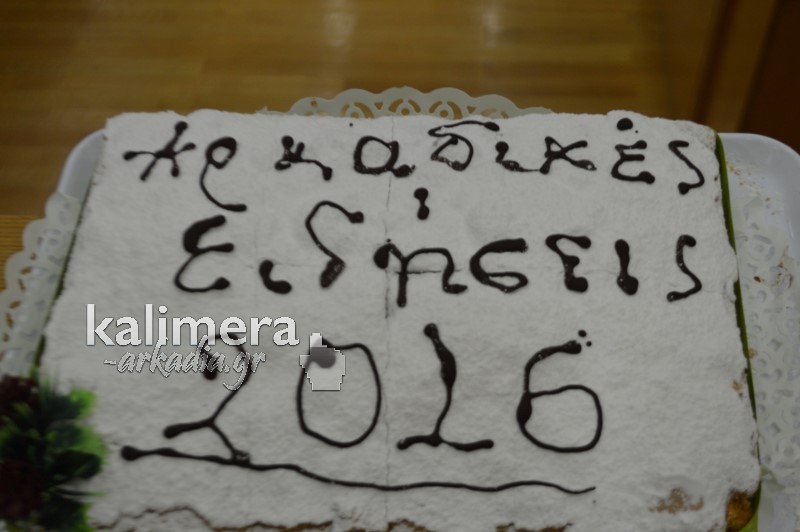 Αρκαδικές
ειδήσεις
kalimera
-arkadia.gr
2016